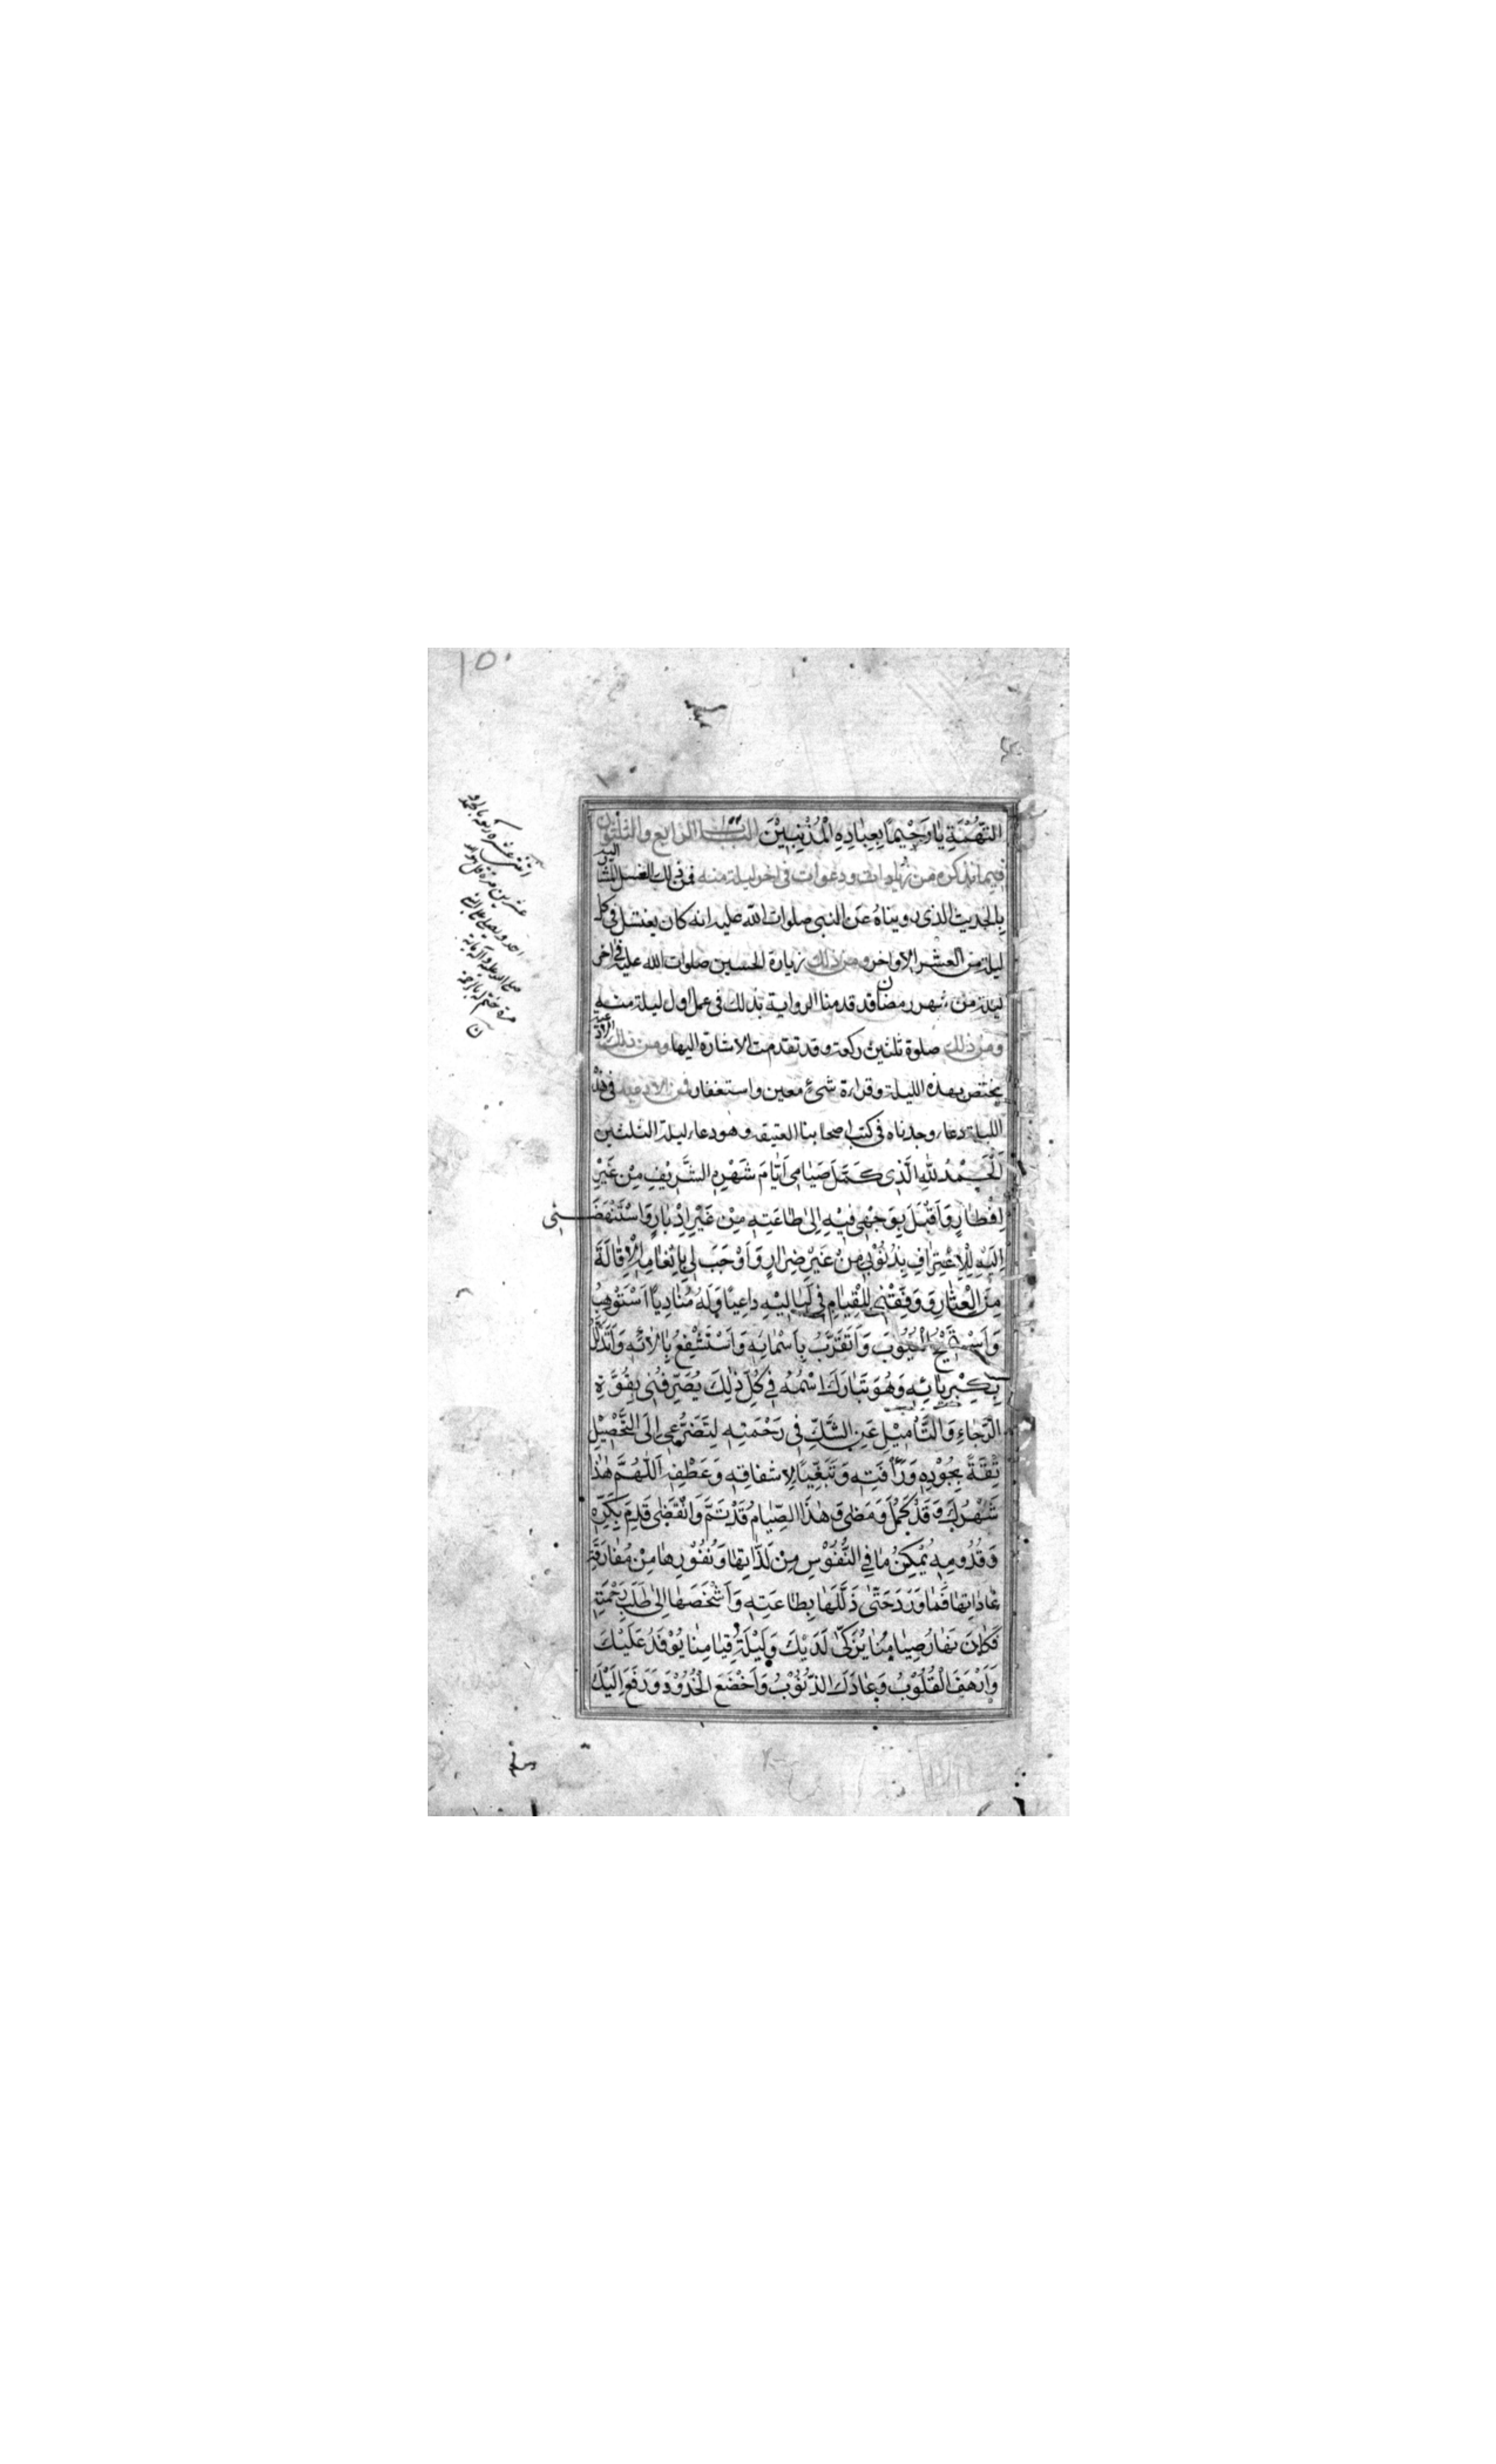 ١٥٠
التُّهْمَةِ يَا رَحِيْماً بِعِبَادِهِ الْمُذْنِبِيْنَ الباب الرابع والثلثون
فيما نذكره من زيادات ودعوات في اخر ليلة منه فمن ذلك الغسل المشار اليه
بالحديث الذى رويناه عن النبي صلوات الله عليه انه كان يغتسل في كل
ليلة من العشر الاواخر ومن ذلك زيارة الحسين صلوات الله عليه في اخر
ليلة من شهر رمضان قد قدمنا الرواية بذلك في عمل اول ليلة منه
ومن ذلك صلوة ثلثين ركعة وقد تقدمت الاشارة اليها ومن ذلك الادعية
يختص بهذه الليلة وقراءة شئ معين واستغفار فمن الادعية في هذه
الليلة دعاء وجدناه في كتب اصحابنا العتيقة وهو دعاء ليلة الثلثين
اَلْحَمْدُ لِلّٰهِ الَّذِى كَمَّلَ صِيَامِى اَيَّامَ شَهْرِهِ الشَّرِيْفِ مِنْ غَيْرِ
اِفْطَارٍ وَاَقْبَلَ بِوَجْهِى فِيْهِ اِلىٰ طَاعَتِهِ مِنْ غَيْرِ اِدْبَارٍ وَاسْتَنْهَضَنِى
اِلَيْهِ لِلْاِعْتِرَافِ بِذُنُوْبِى مِنْ غَيْرِ ضِرَارٍ وَاَوْجَبَ لِى بِاِنْعَامِهِ الْاِقَالَةَ
مِنَ الْعِثَارِ وَوَفَّقَنِى لِلْقِيَامِ فِى لَيَالِيْهِ دَاعِياً وَلَهُ مُنَادِياً اَسْتَوْهِبُ
وَاَسْتَمِيْحُ الْعُيُوْبَ وَاَتَقَرَّبُ بِاَسْمَائِهِ وَاَسْتَشْفِعُ بِاٰلَائِهِ وَاَتَذَلَّلُ
بِكِبْرِيَائِهِ وَهُوَ تَبَارَكَ اسْمُهُ فِى كُلِّ ذٰلِكَ يُصَرِّفُنِى بِقُوَّةِ
الرَّجَاءِ وَالتَّأْمِيْلِ عَنِ الشَّكِّ فِى رَحْمَتِهِ لِتَضَرُّعِى اِلَى التَّحْصِيْلِ
ثِقَةً بِجُوْدِهِ وَرَأْفَتِهِ وَتَبَغِّياً لِاِشْفَاقِهِ وَعَطْفِهِ اَللّٰهُمَّ هٰذَا
شَهْرُكَ وَقَدْ كَمُلَ وَمَضٰى وَهٰذَا الصِّيَامُ قَدْ تَمَّ وَانْقَضٰى قَدِمَ بِكُرْهِ
وَقُدُوْمِهِ يُمْكِنُ مَا فِى النُّفُوْسِ مِنْ لَذَّاتِهَا وَنُفُوْرِهَا مِنْ مُفَارَقَةِ
عَادَاتِهَا فَمَا وَرَدَ حَتّٰى ذَلَّلَهَا بِطَاعَتِهِ وَاَشْخَصَهَا اِلىٰ طَلَبِ رَحْمَتِهِ
فَكَانَ نَهَارُ صِيَامِنَا يُزَكّٰى لَدَيْكَ وَلَيْلَةُ قِيَامِنَا يُوْفَدُ عَلَيْكَ
وَاَرْهَفَ الْقُلُوْبُ وَعَادَكَ الذُّنُوْبُ وَاَخْضَعَ الْخُدُوْدَ وَرَفَعَ اِلَيْكَ